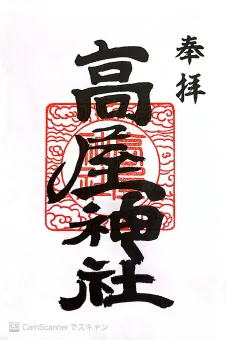 奉拝
高屋神社
CamScanner でスキャン